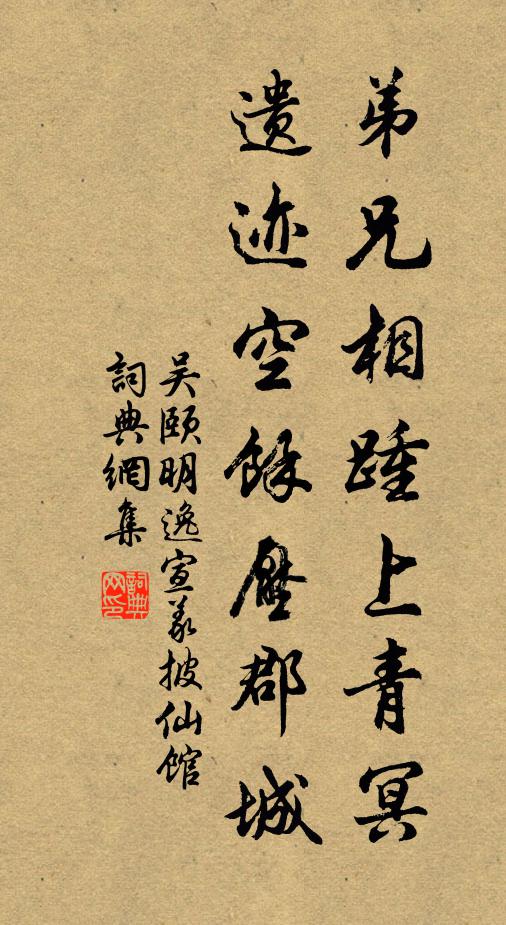 弟兄相踵上青冥
遗迹空馀压郡城
吴颐明逸宣义披仙馆
詞典網集
詞典网印